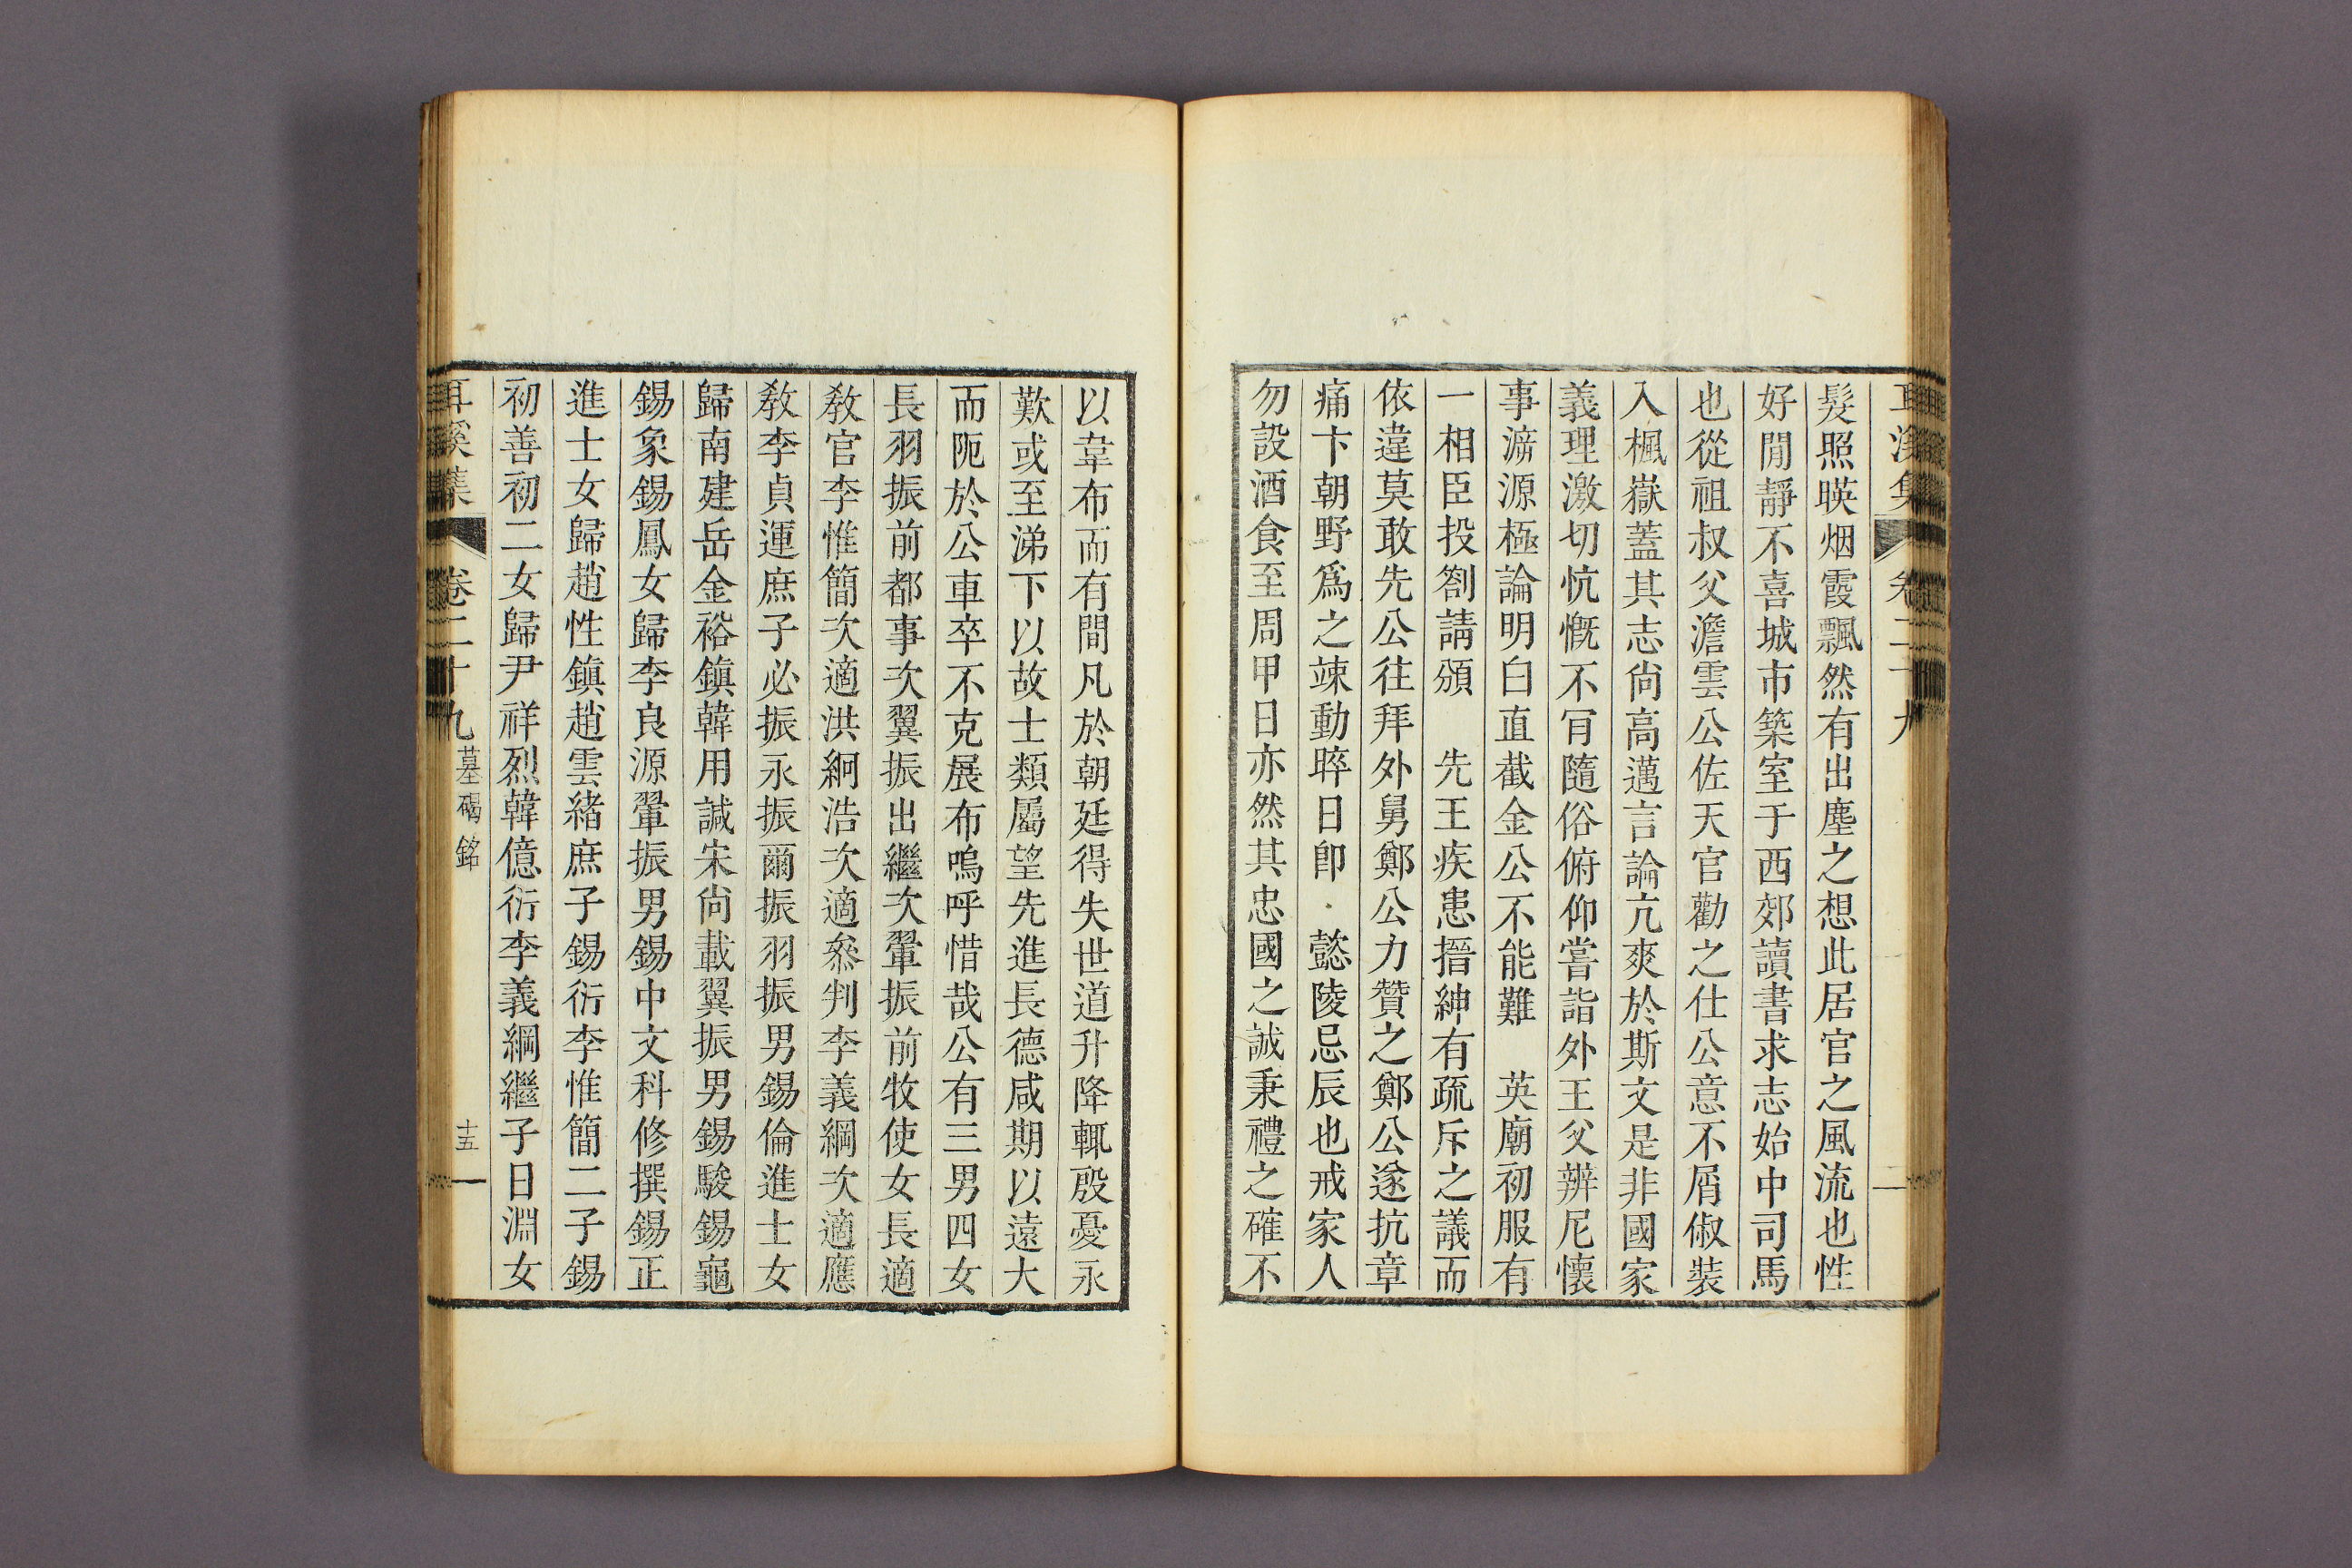 耳溪集 卷二十九
髮照暎烟霞飄然有出塵之想此居官之風流也性
好閒靜不喜城市築室于西郊讀書求志始中司馬
也從祖叔父澹雲公佐天官勸之仕公意不屑俶裝
入楓嶽蓋其志尙高邁言論亢爽於斯文是非國家
義理激切忼慨不肎隨俗俯仰嘗詣外王父辨尼懷
事㴑源極論明白直截金公不能難 英廟初服有
一相臣投劄請頒 先王疾患搢紳有疏斥之議而
依違莫敢先公往拜外舅鄭公力贊之鄭公遂抗章
痛卞朝野爲之竦動晬日卽 懿陵忌辰也戒家人
勿設酒食至周甲日亦然其忠國之誠秉禮之確不
以韋布而有間凡於朝廷得失世道升降輒殷憂永
歎或至涕下以故士類屬望先進長德咸期以遠大
而阨於公車卒不克展布嗚呼惜哉公有三男四女
長羽振前都事次翼振出繼次翬振前牧使女長適
敎官李惟簡次適洪絅浩次適叅判李義綱次適應
敎李貞運庶子必振永振爾振羽振男錫倫進士女
歸南建岳金裕鎮韓用諴宋尙載翼振男錫駿錫龜
錫象錫鳳女歸李良源翬振男錫中文科修撰錫正
進士女歸趙性鎮趙雲緖庶子錫衍李惟簡二子錫
初善初二女歸尹祥烈韓億衍李義綱繼子日淵女
耳溪集 卷二十九 墓碣銘 十五